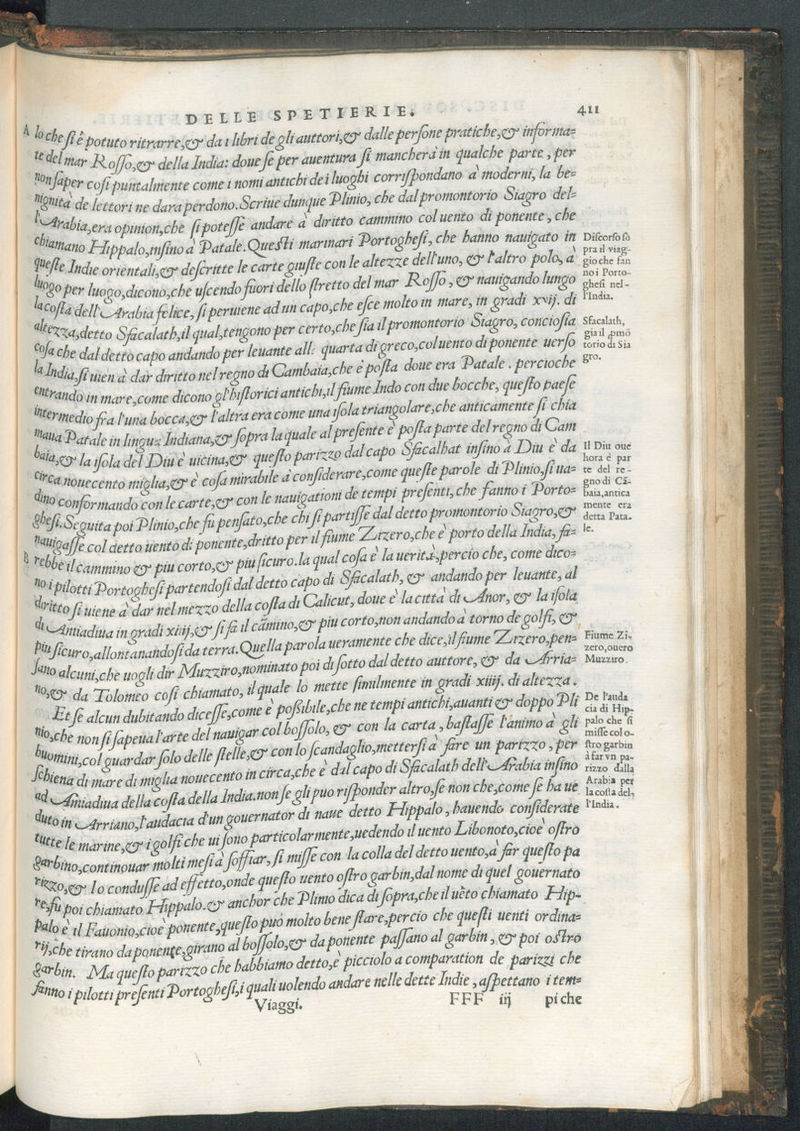 DELLE SPETIERIE. 411
A lo che si è potuto ritrarre,& da i libri de gli auttori,& dalle persone pratiche,& informa=
te del mar Rosso,& della India: doue se per auentura si mancherà in qualche parte, per
non saper cosi puntalmente come i nomi antichi dei luoghi corrispondano a moderni, la be=
nignità de lettori ne dara perdono. Scriue dunque Plinio, che dal promontorio Siagro del=
l'Arabia,era opinion,che si potesse andare à diritto cammino col uento di ponente, che
chiamano Hippalo,insino à Patale. Questi marinari Portoghesi, che hanno nauigato in
queste Indie orientali,& descritte le carte giuste con le altezze dell'uno, & l'altro polo, a
luogo per luogo,dicono,che uscendo fuori dello stretto del mar Rosso, & nauigando lungo
la costa dell'Arabia felice, si peruiene ad un capo,che esce molto in mare, in gradi xvij. di
altezza,detto Sfacalath,il qual,tengono per certo,che sia il promontorio Siagro, conciosia
cosa che dal detto capo andando per leuante all: quarta di greco,col uento di ponente uerso
la India,si uien à dar diritto nel regno di Cambaia,che è posta doue era Patale. percioche
entrando in mare,come dicono gl'historici antichi,il fiume Indo con due bocche, questo paese
intermedio fra l'una bocca,& l'altra era come una isola triangolare,che anticamente si chia
maua Patale in lingua Indiana,& sopra la quale al presente è posta parte del regno di Cam
baia,& la isola del Diu è uicina,& questo parizzo dal capo Sfacalhat insino à Diu è da
circa nouecento miglia,& è cosa mirabile à considerare,come queste parole di Plinio,si ua=
dino conformando con le carte,& con le nauigationi de tempi presenti, che fanno i Porto=
ghesi.Seguita poi Plinio,che fu pensato,che chi si partisse dal detto promontorio Siagro,&
nauigasse col detto uento di ponente,dritto per il fiume Zizero,che è porto della India, fa=
B rebbe il cammino & piu corto,& piu sicuro.la qual cosa è la uerità,percio che, come dico=
no i pilotti Portoghesi partendosi dal detto capo di Sfacalath, & andando per leuante, al
diritto si uiene à dar nel mezzo della costa di Calicut, doue è la città di Anor, & la isola
di Amiadiua in gradi xiiij,& si fà il cãmino,& piu corto,non andando à torno de golfi, &
piu sicuro,allontanandosi da terra. Quella parola ueramente che dice,il fiume Zizero,pen=
sano alcuni,che uogli dir Muzziro,nominato poi di sotto dal detto auttore, & da Arria=
no,& da Tolomeo cosi chiamato, il quale lo mette similmente in gradi xiiij. di altezza.
Et se alcun dubitando dicesse,come è possibile,che ne tempi antichi,auanti & doppo Pli
nio,che non si sapeua l'arte del nauigar col bossolo, & con la carta, bastasse l'animo à gli
huomini,col guardar solo delle stelle,& con lo scandaglio,mettersi à fare un parizzo, per
schiena di mare di miglia nouecento in circa,che è dal capo di Sfacalath dell'Arabia insino
ad Amiadiua della costa della India.non se gli puo risponder altro,se non che,come se ha ue
duto in Arriano,l'audacia d'un gouernator di naue detto Hippalo, hauendo considerate
tutte le marine,& i golfi che ui sono particolarmente,uedendo il uento Libonoto,cioè ostro
garbino,continouar molti mesi à soffiar, si misse con la colla del detto uento,à far questo pa
rizzo,& lo condusse ad effetto,onde questo uento ostro garbin,dal nome di quel gouernato
re,fù poi chiamato Hippalo.& anchor che Plinio dica di sopra,che il uẽto chiamato Hip-
palo è il Fauonio,cioè ponente,questo può molto bene stare,percio che questi uenti ordina=
rij,che tirano da ponente,girano al bossolo,& da ponente passano al garbin, & poi ostro
garbin. Ma questo parizzo che habbiamo detto,è picciolo a comparation de parizzi che
fanno i pilotti presenti Portoghesi,i quali uolendo andare nelle dette Indie, aspettano i tem=
Viaggi. FFF iij pi che
Discorso so
pra il viag-
gio che fan
no i Porto-
ghesi nel-
l'India.
Sfacalath,
gia il ꝓmõ
torio di Sia
gro.
Il Diu oue
hora è par
te del re-
gno di Cã-
baia,antica
mente era
detta Pata-
le.
Fiume Zi-
zero,ouero
Muzziro.
De l'auda
cia di Hip-
palo che si
misse col o-
stro garbin
à far vn pa-
rizzo dalla
Arabia per
la costa del-
l'India.